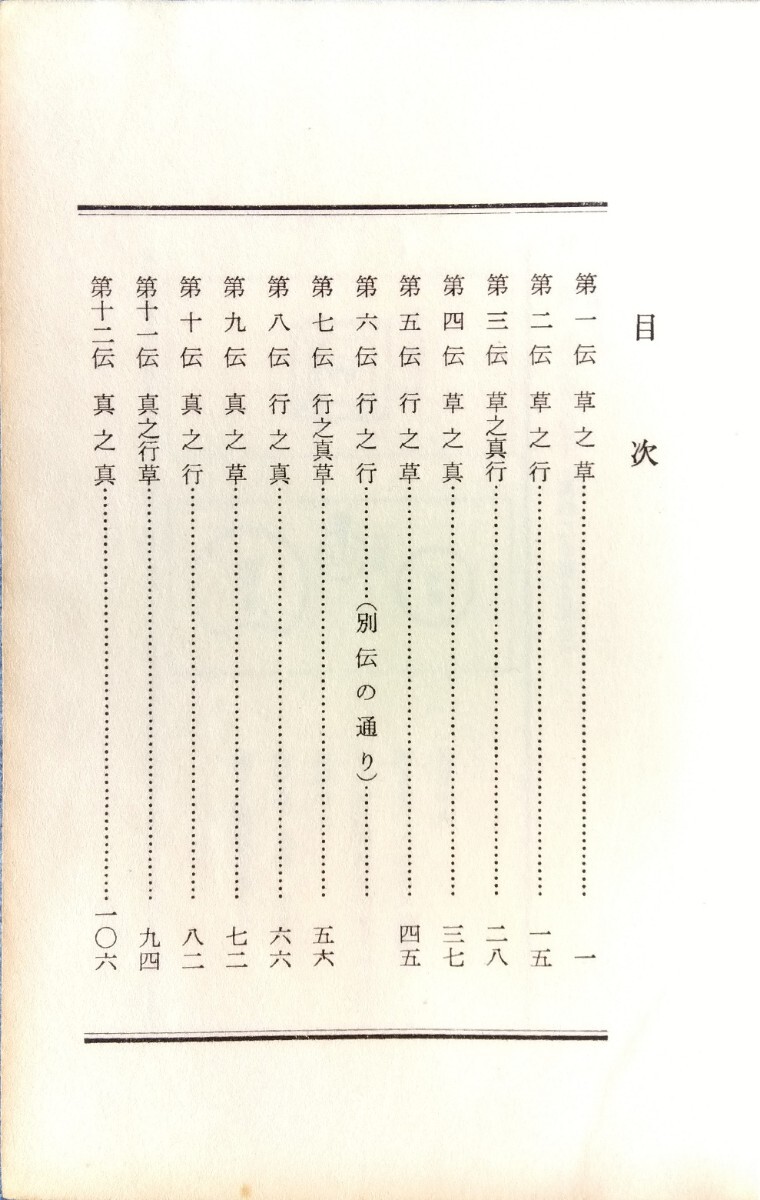 目次
第一伝 草之草……一
第二伝 草之行……一五
第三伝 草之真行……二八
第四伝 草之真……三七
第五伝 行之草……四五
第六伝 行之行……(別伝の通り)……
第七伝 行之真草……五六
第八伝 行之真……六六
第九伝 真之草……七二
第十伝 真之行……八二
第十一伝 真之行草……九四
第十二伝 真之真……一〇六